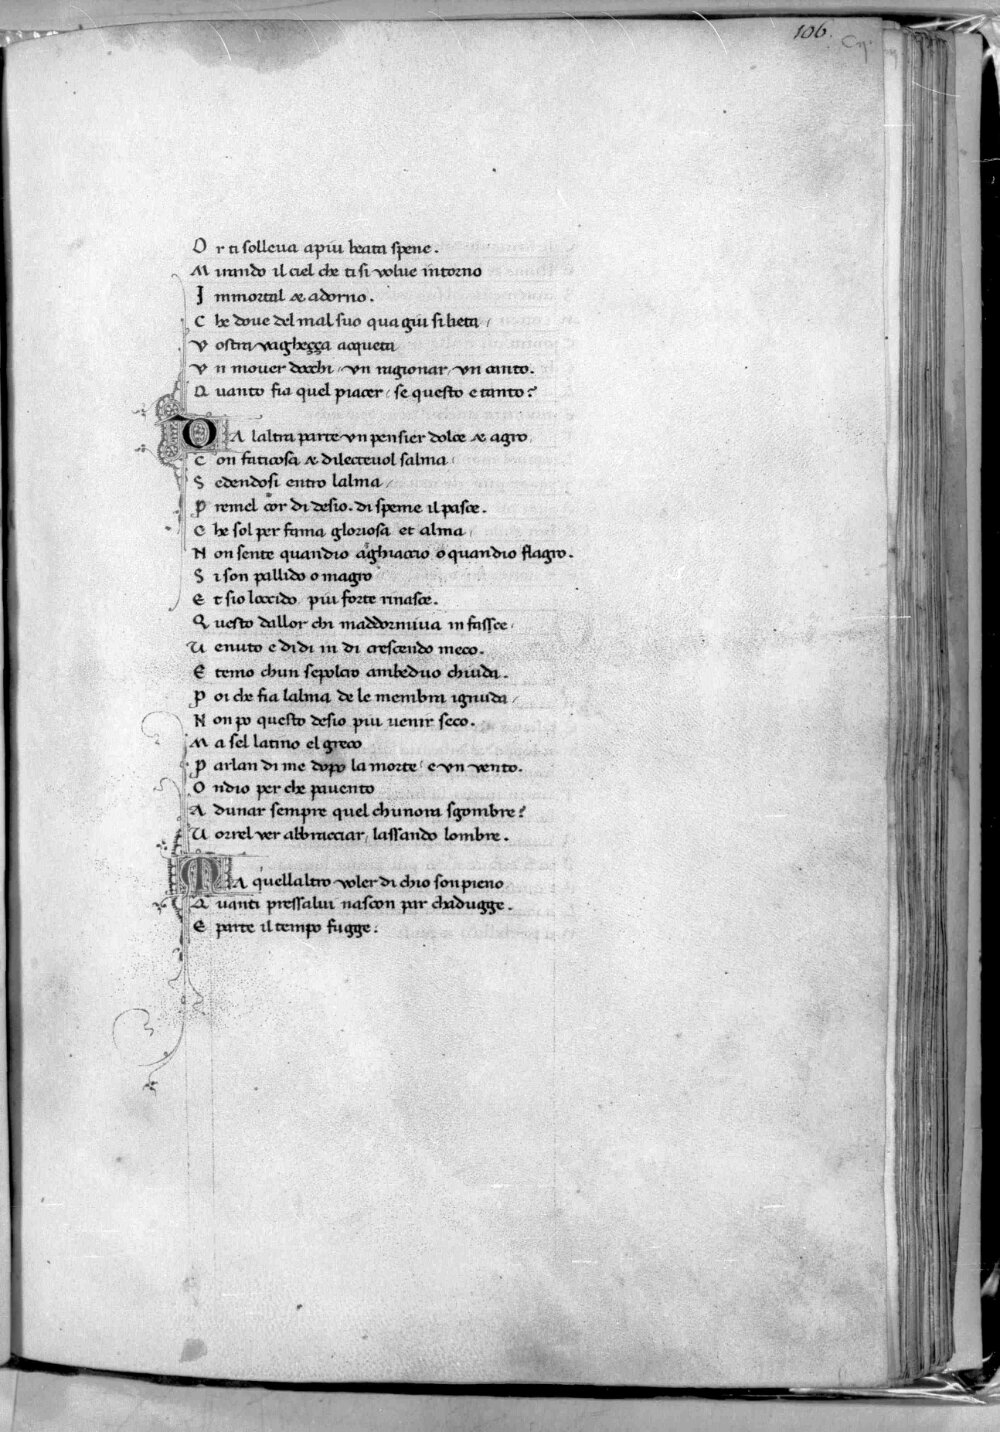 106.
O r ti solleva a piu beata spene.
M irando il ciel che ti si volve intorno
I mmortal & adorno.
C he dove del mal suo qua giu si lieta /
V ostra vaghezza acqueta
V n mover docchi / vn ragionar / vn canto.
Q uanto fia quel piacer / se questo e tanto?
D A laltra parte vn pensier dolce & agro
C on faticosa & dilectevol salma
S edendosi entro lalma /
P remel cor di desio. di speme il pasce.
C he sol per fama gloriosa et alma
N on sente quandio aghiaccio o quandio flagro.
S i son pallido o magro
E t sio loccido piu forte rinasce.
Q uesto dallor chi maddormiva in fassce /
U enuto e di di in di crescendo meco.
E temo chun sepolcro ambeduo chiuda.
P oi che fia lalma de le membra ignuda /
N on po questo desio piu uenir seco.
M a sel latino el greco
P arlan di me dopo la morte / e vn vento.
O ndio per che pavento
A dunar sempre quel chunora sgombre?
U orrel ver abbracciar / lassando lombre.
M A quellaltro voler di chio son pieno
Q uanti pressalui nascon par chadugge.
E parte il tempo fugge.